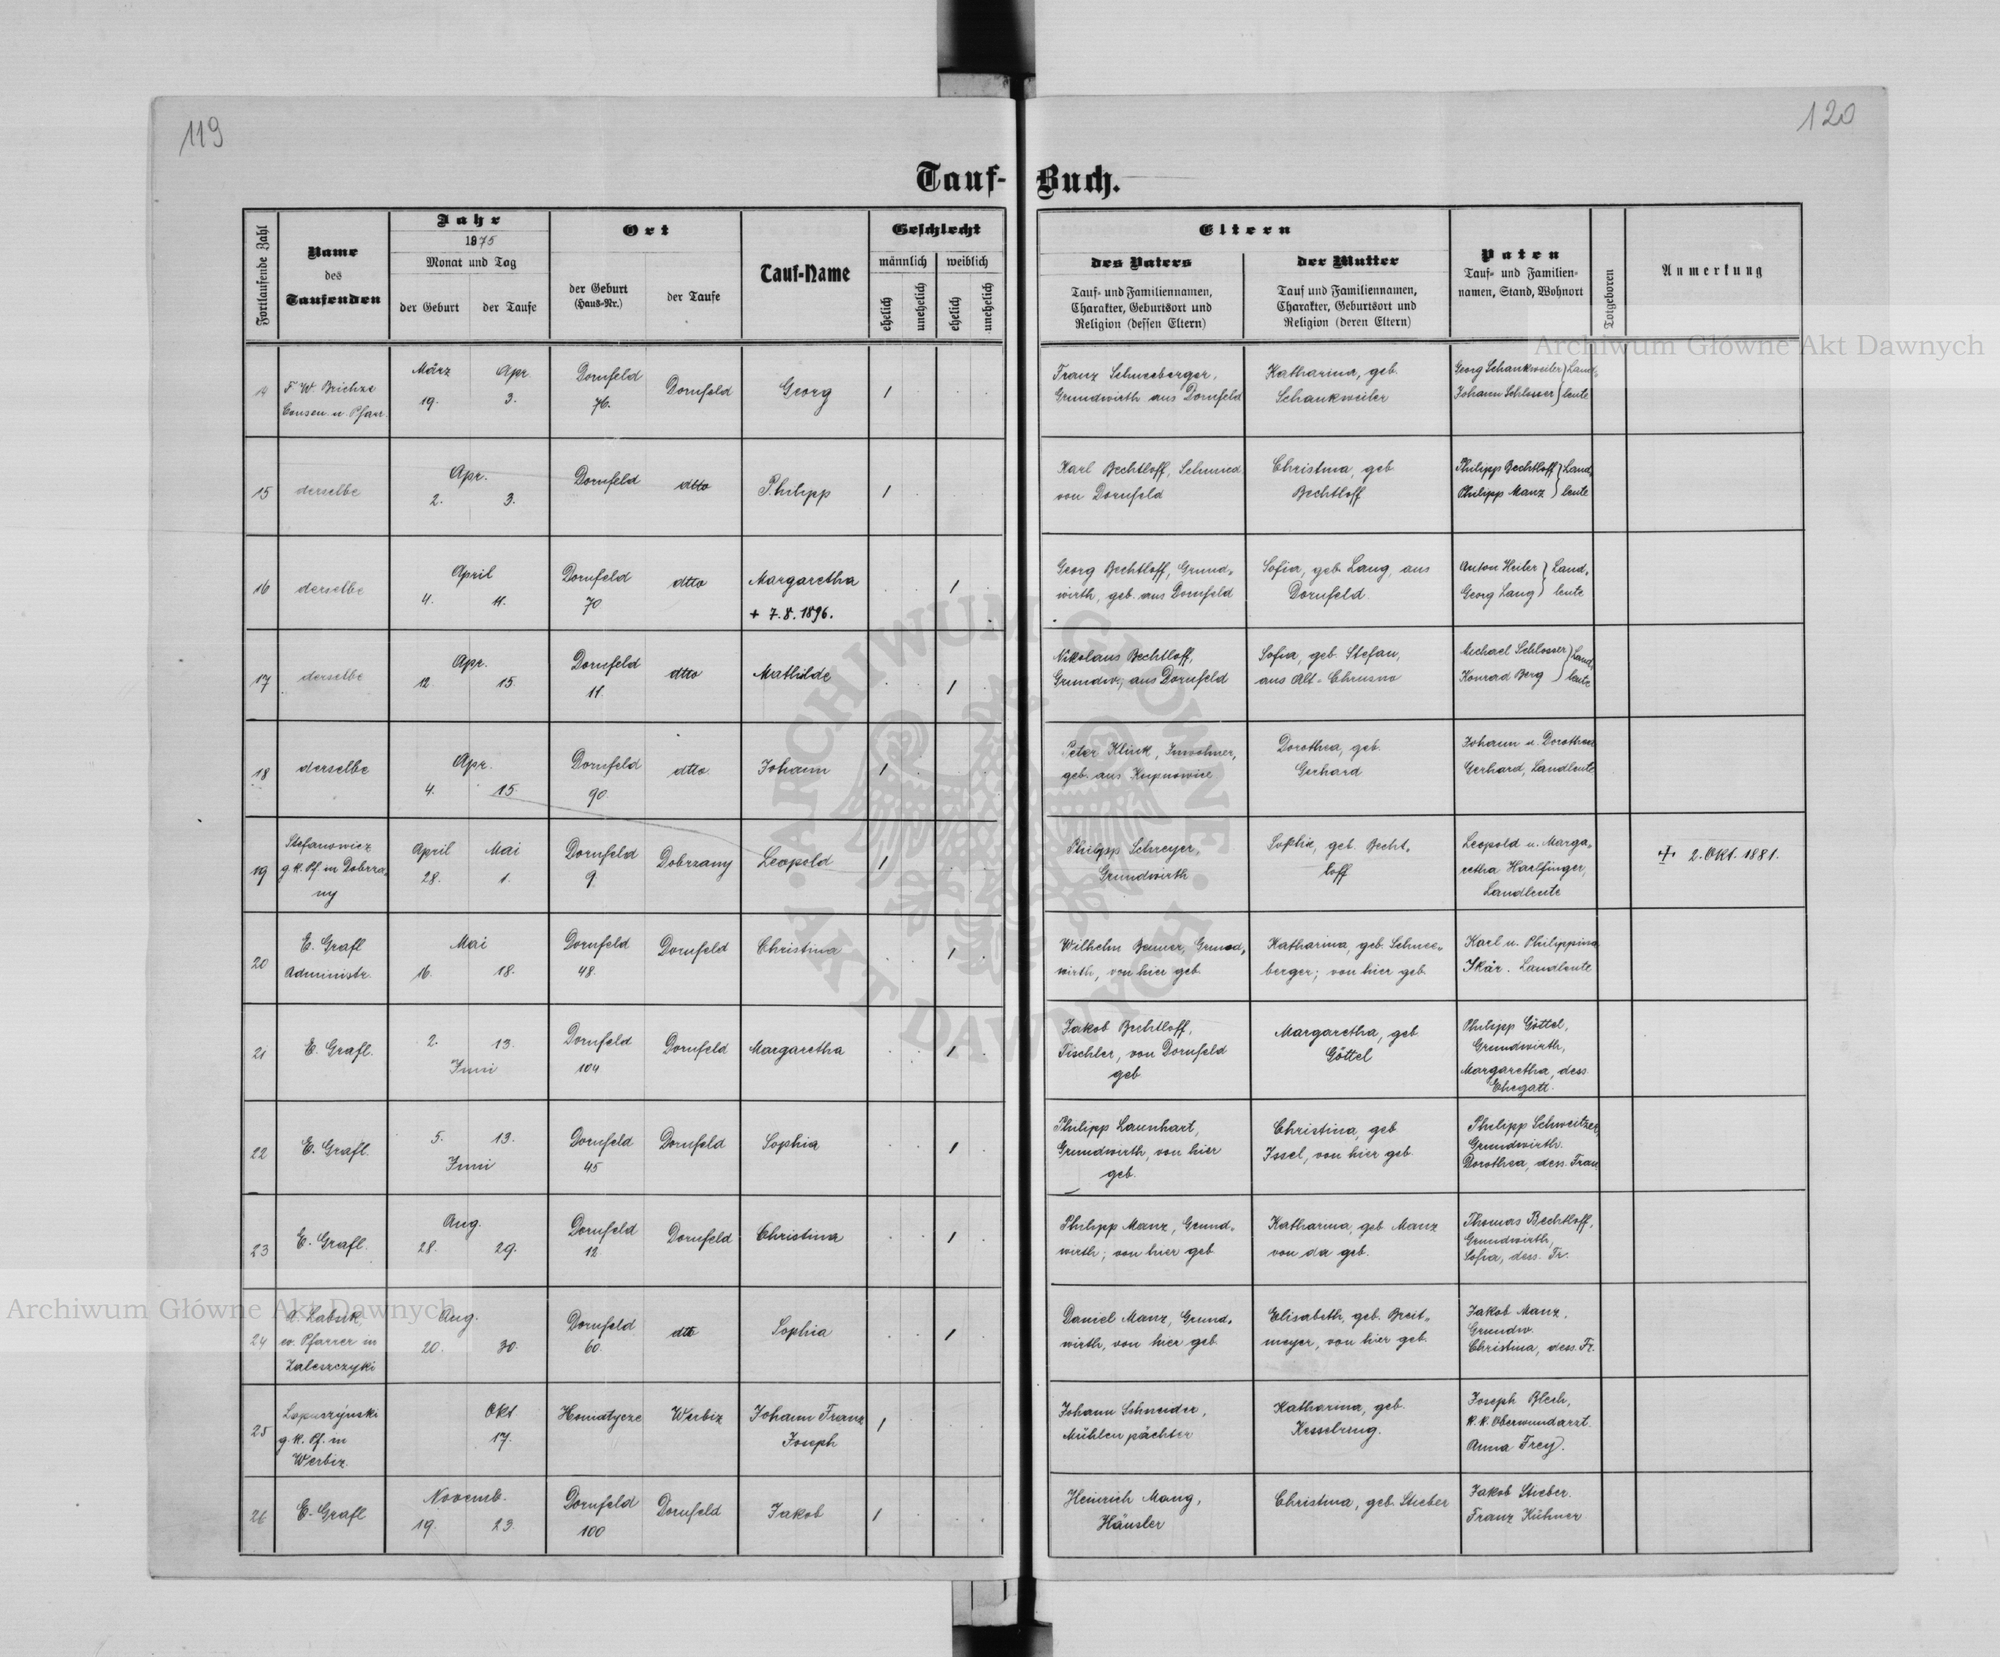 119
120
Tauf-Buch.
Fortlaufende Zahl
Name
des
Taufenden
Jahr
1875
Monat und Tag
der Geburt
der Taufe
Ort
der Geburt
(Haus-Nr.)
der Taufe
Tauf-Name
Geschlecht
männlich
weiblich
ehelich
unehelich
ehelich
unehelich
Eltern
des Vaters
Tauf- und Familiennamen,
Charakter, Geburtsort und
Religion (dessen Eltern)
der Mutter
Tauf und Familiennamen,
Charakter, Geburtsort und
Religion (deren Eltern)
Paten
Tauf- und Familien-
namen, Stand, Wohnort
Totgeboren
Anmerkung
F W. Brichze
Consen. u. Pfarr.
März Apr
19. 3.
Dornfeld
76.
Dornfeld
Georg
1
Franz Schneeberger,
Grundwirth aus Dornfeld
Katharina, geb.
Schankweiler
Georg Schankweiler } Land-
Johann Schlosser } leute
15
derselbe
Apr.
2. 3.
Dornfeld
dtto
Philipp
1
Karl Bechtloff, Schmied
von Dornfeld
Christina, geb
Bechtloff
Philipp Bechtloff } Land
Philipp Manz } leute
16
derselbe
April
4. 11.
Dornfeld
70
dtto
Margaretha
+ 7.8.1896.
1
Georg Bechtloff, Grund-
wirth, geb. aus Dornfeld
Sofia, geb. Lang, aus
Dornfeld.
Anton Heiler } Land-
Georg Lang } leute
17
derselbe
Apr.
12 15.
Dornfeld
11.
dtto
Mathilde
1
Nikolaus Bechtloff,
Grundw., aus Dornfeld
Sofia, geb. Stefan,
aus Alt-Chrusno
Michael Schlosser } Land-
Konrad Berg } leute
18
derselbe
Apr.
4. 15.
Dornfeld
90.
dtto.
Johann
1
Peter Klink, Inwohner,
geb. aus Kupnowice
Dorothea, geb.
Gerhard
Johann u. Dorothea
Gerhard, Landleute
19
Stefanowicz
g.k. Pf. in Dobrza-
ny
April Mai
28. 1.
Dornfeld
9.
Dobrzany
Leopold
1
Philipp Schreyer,
Grundwirth
Sophie, geb. Becht-
loff
Leopold u. Marga-
retha Harlfinger,
Landleute
+ 2. Okt. 1881.
20
E. Grafl
Administr.
Mai
16. 18.
Dornfeld
48.
Dornfeld
Christina
1
Wilhelm Benner, Grund-
wirth, von hier geb.
Katharina, geb. Schnee-
berger; von hier geb.
Karl u. Philippina
Landleute
21
E. Grafl.
2. 13.
Juni
Dornfeld
104
Dornfeld
Margaretha
1
Jakob Bechtloff,
Tischler, von Dornfeld
geb
Margaretha, geb
Göttel
Philipp Göttel,
Grundwirth,
Margaretha, dess.
Ehegatt.
22
E. Grafl.
5. 13.
Juni
Dornfeld
45
Dornfeld
Sophia
1
Philipp Launhart,
Grundwirth, von hier
geb.
Christina, geb
Issel, von hier geb.
Philipp Schweitzer,
Grundwirth.
Dorothea, dess. Frau
23
E. Grafl.
Aug.
28. 29.
Dornfeld
12
Dornfeld
Christina
1
Philipp Manz, Grund-
wirth; von hier geb.
Katharina, geb Manz
von da geb.
Thomas Bechtloff,
Grundwirth,
Sofia, dess. Fr.
24
ev. Pfarrer in
Zaleszczyki
Aug.
20. 30.
Dornfeld
60.
dtto
Sophia
1
Daniel Manz, Grund-
wirth, von hier geb.
Elisabeth, geb. Breit-
meyer, von hier geb.
Jakob Manz,
Grundw.
Christina, dess. Fr.
25
Lopuszýnski
g.k. Pf. in
Werbiz.
Okt
17.
Homatycze
Werbiz
Johann Franz
Joseph
1
Johann Schneider,
Mühlenpächter
Katharina, geb.
Kesselring.
Joseph Blech,
k.k. Oberwundarzt.
Anna Frey.
26
E. Grafl
Novemb.
19. 23.
Dornfeld
100
Dornfeld
Jakob
1
Heinrich Mang,
Häusler
Christina, geb. Stieber
Jakob Stieber.
Franz Kühner
Archiwum Główne Akt Dawnych
Archiwum Główne Akt Dawnych
ARCHIWUM GŁÓWNE AKT DAWNYCH